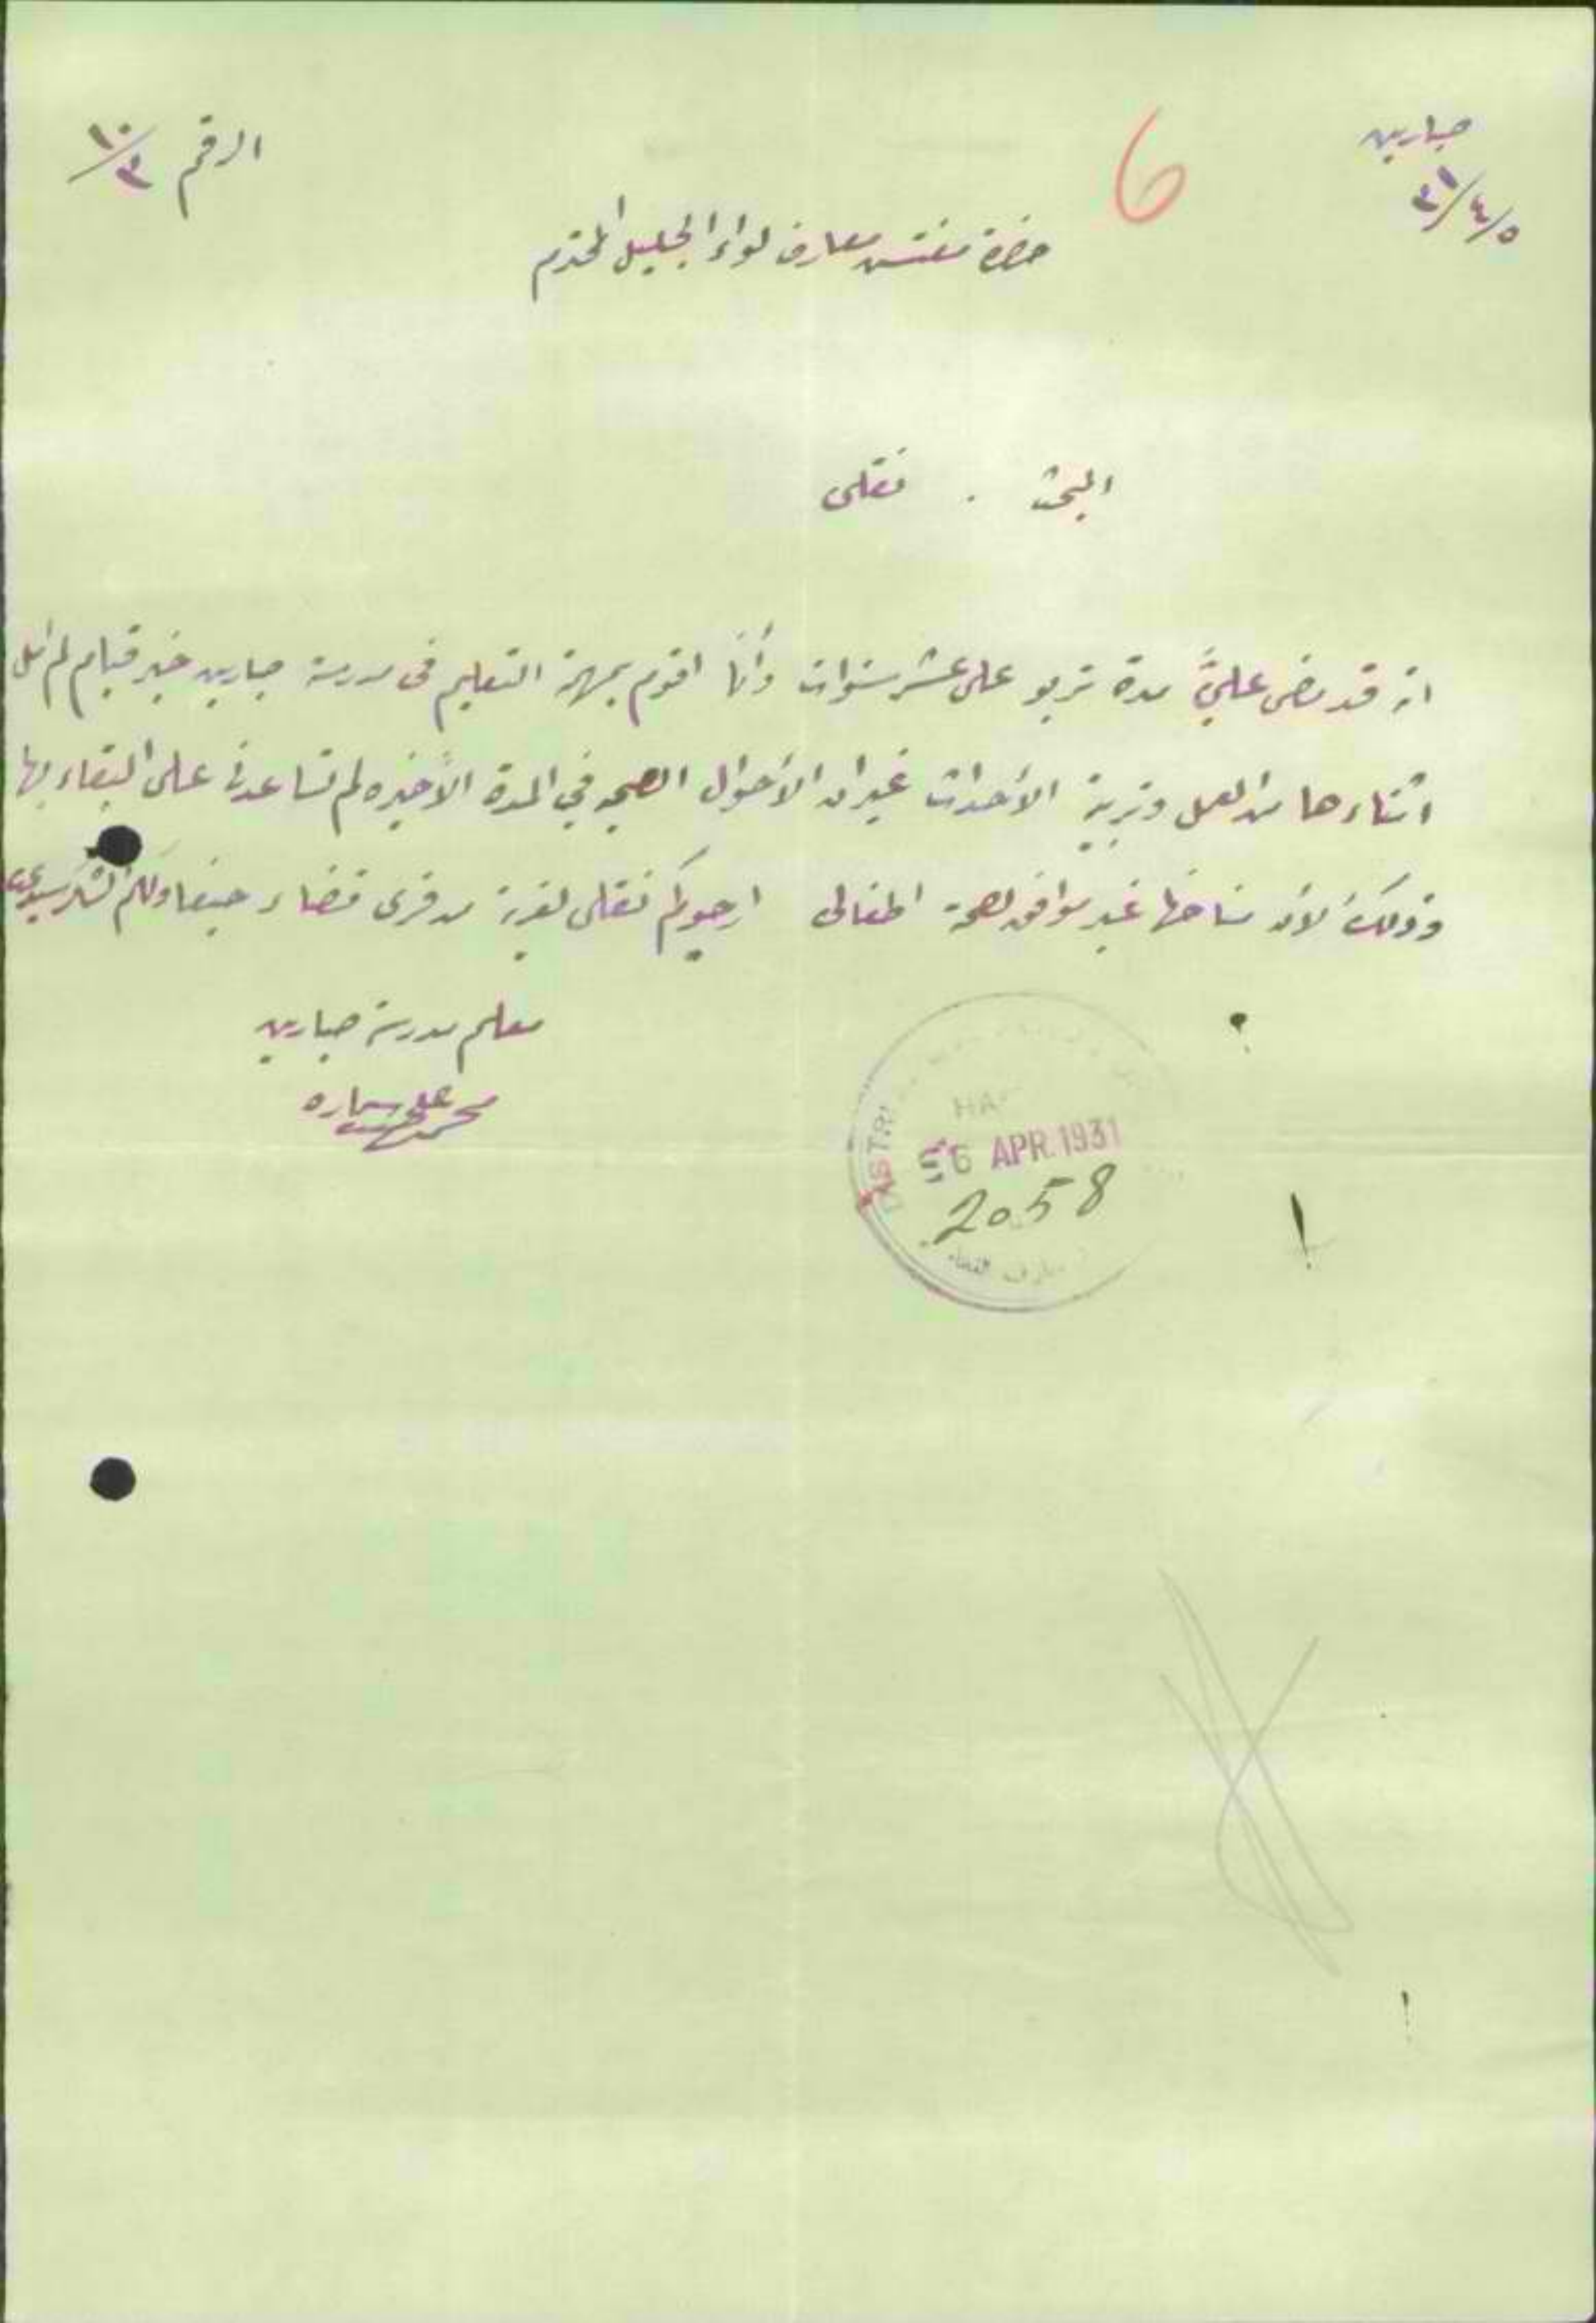 صبارين
٣١/٤/٥
الرقم ١٠/٣
6
حضرة مفتش معارف لواء الجليل المحترم
البحث . نقلى
انه قد مضى عليَّ مدة تربو على عشر سنوات وأنا اقوم بمهنة التعليم فى مدرسة صبارين خير قيام لم أمل
اثناءها من العمل وتربية الأحداث غير ان الأحوال الصحيه في المدة الأخيره لم تساعدنى على البقاء بها
وذلك لأن مناخها غير موافق لصحة اطفالى ارجوكم نقلى لقرية من قرى قضاء حيفا ولكم الشكر سيدى
معلم مدرسة صبارين
محمد على سماره
DISTRI
HA
6 APR. 1931
2058
معارف